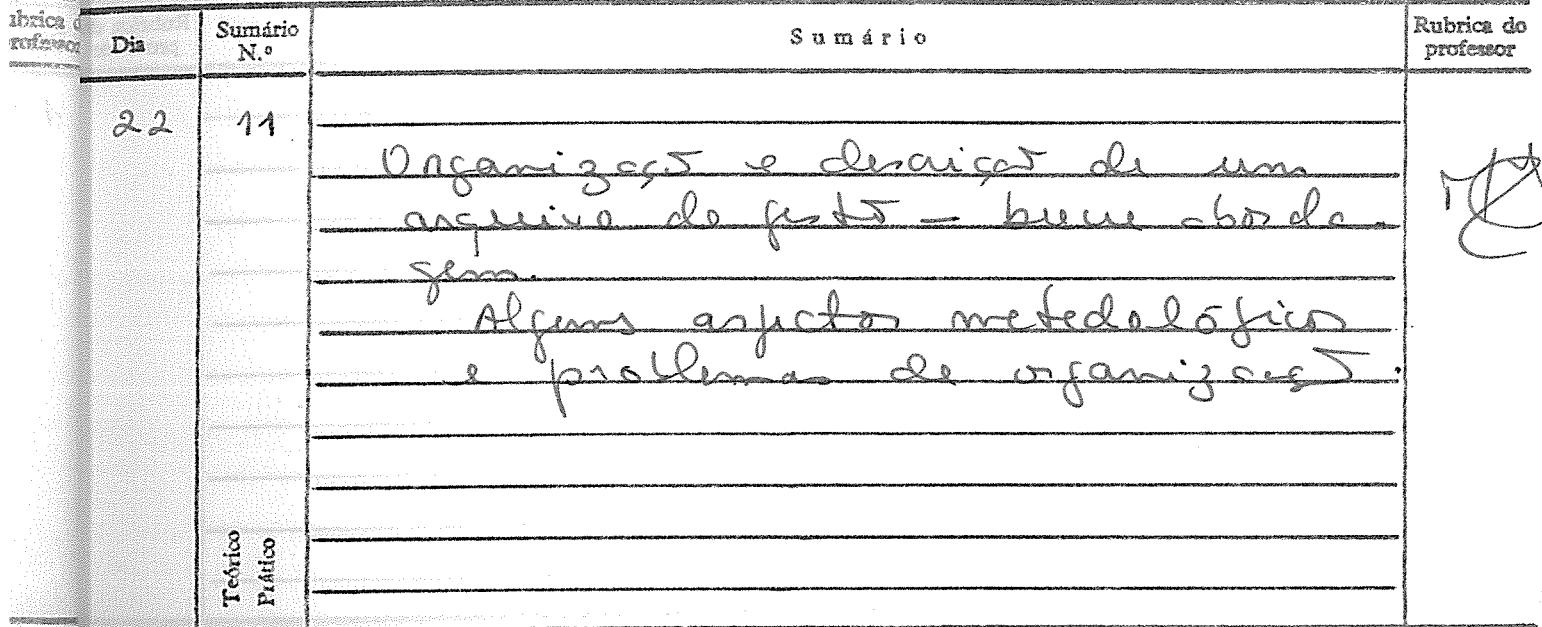 ubrica d
rofessor
Dia
Sumário
N.º
Sumário
Rubrica do
professor
22
11
Organização e descrição de um
arquivo de gestão – breve aborda
gem.
Alguns aspectos metedológicos
e problemas de organização.
Teórico
Prático